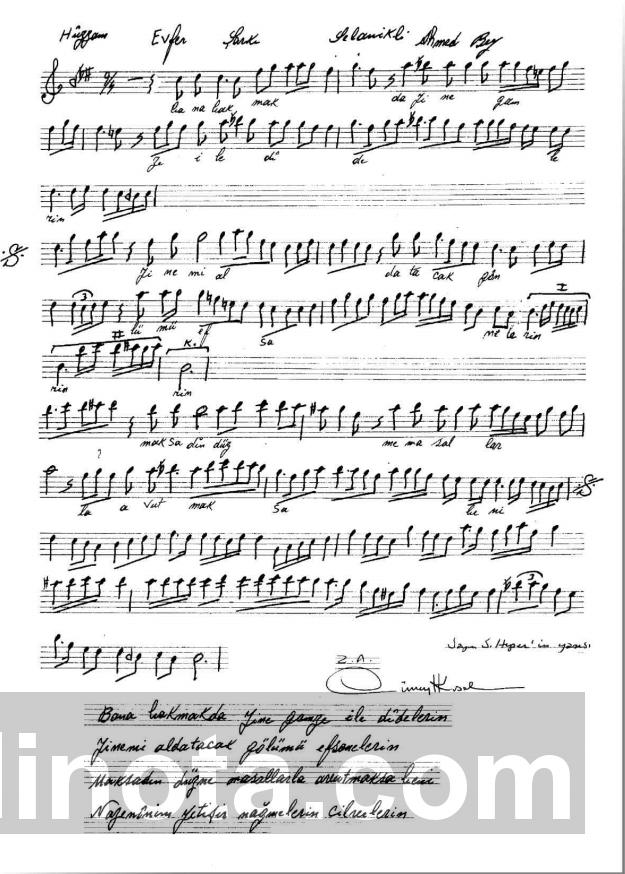 Hüzzam Evfer Şarkı Selanikli Ahmed Bey
9/4
ba na bak mak da yi ne gam
ze i le di de le
rin
yi ne mi al da ta cak gön
I
lü mü ef sa ne le rin
II K.
rin rin
mak sa dın düz me ma sal lar
?
la a vut mak sa be ni
Sayın S. Hiper'in yazısı
Z.A.
Bana bakmakda yine gamze ile dîdelerin
Yinemi aldatacak gölümü efsanelerin
Maksadın düzme masallarla avutmaksa beni
nağmelerin cilvelerin
inota.com